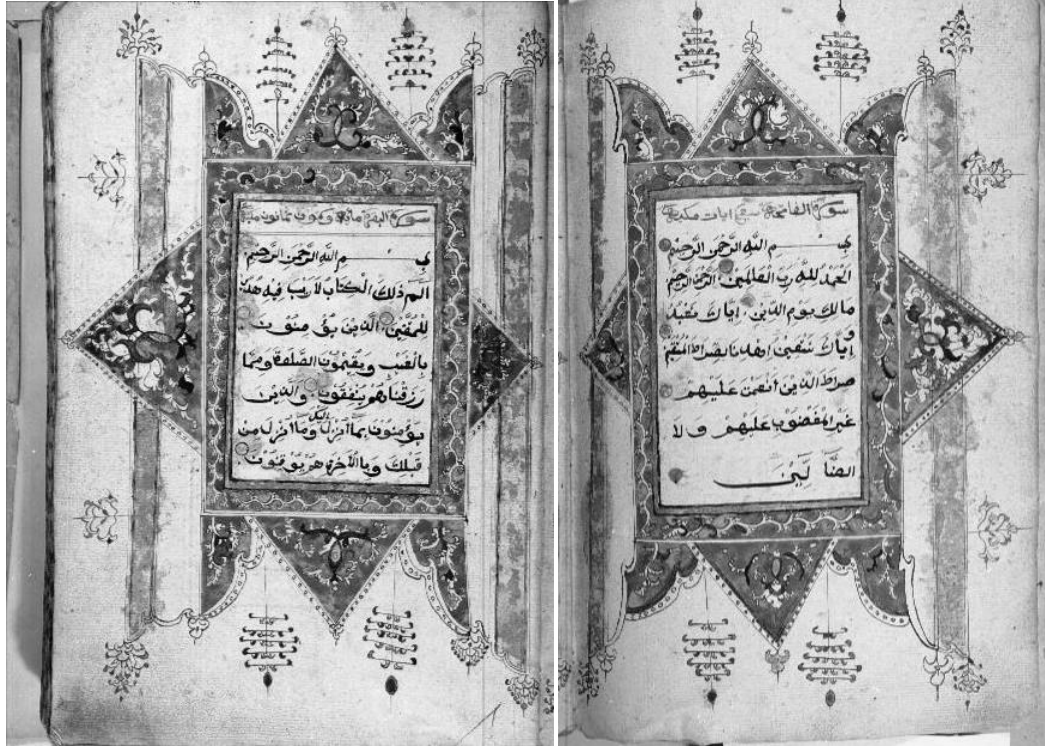 سورة الفاتحة سبع ايات مكية
بِسْمِ اللَّهِ الرَّحْمَنِ الرَّحِيمِ
الْحَمْدُ لِلَّهِ رَبِّ الْعَالَمِينَ الرَّحْمَنِ الرَّحِيمِ
مَالِكِ يَوْمِ الدِّينِ إِيَّاكَ نَعْبُدُ
وَإِيَّاكَ نَسْتَعِينُ اهْدِنَا الصِّرَاطَ الْمُسْتَقِيمَ
صِرَاطَ الَّذِينَ أَنْعَمْتَ عَلَيْهِمْ
غَيْرِ الْمَغْضُوبِ عَلَيْهِمْ وَلَا
الضَّآلِّينَ
سورة البقرة مائة وثمانون
بِسْمِ اللَّهِ الرَّحْمَنِ الرَّحِيمِ
الم ذَلِكَ الْكِتَابُ لَا رَيْبَ فِيهِ هُدًى
لِلْمُتَّقِينَ الَّذِينَ يُؤْمِنُونَ
بِالْغَيْبِ وَيُقِيمُونَ الصَّلَوةَ وَمِمَّا
رَزَقْنَاهُمْ يُنْفِقُونَ وَالَّذِينَ
يُؤْمِنُونَ بِمَا أُنْزِلَ إِلَيْكَ وَمَا أُنْزِلَ مِنْ
قَبْلِكَ وَبِالْآخِرَةِ هُمْ يُوقِنُونَ